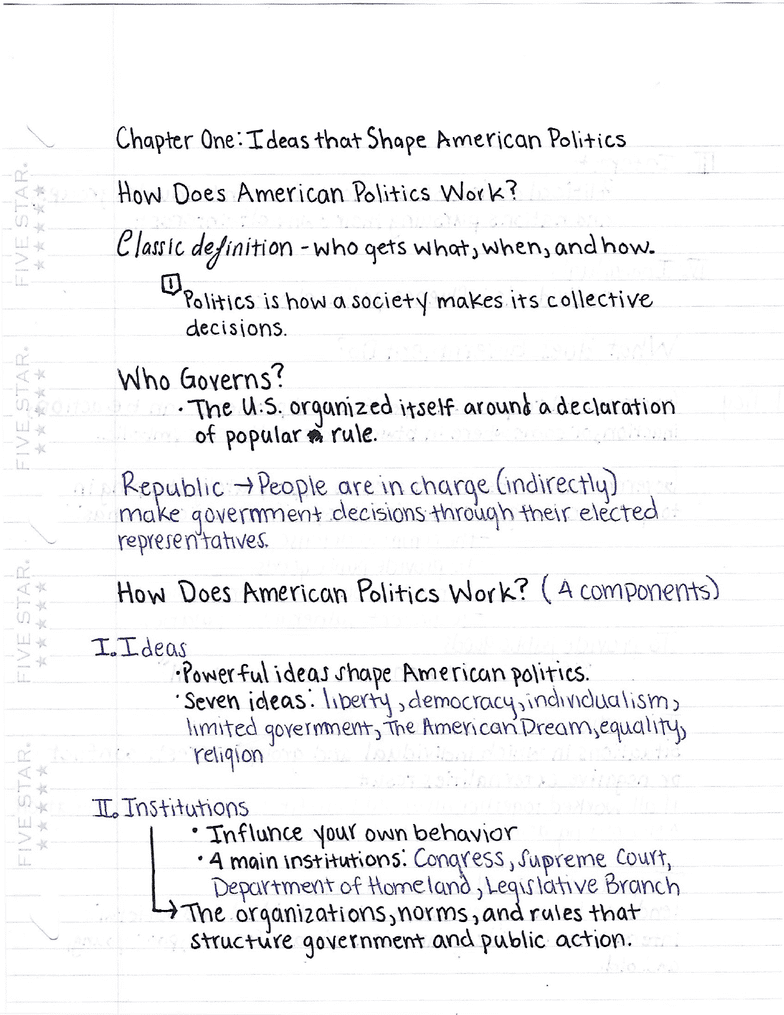 Chapter One: Ideas that Shape American Politics
How Does American Politics Work?
Classic definition - who gets what, when, and how.
Politics is how a society makes its collective
decisions.
Who Governs?
• The U.S. organized itself around a declaration
of popular rule.
Republic → People are in charge (indirectly)
make government decisions through their elected
representatives.
How Does American Politics Work? (4 components)
I. Ideas
• Powerful ideas shape American politics.
• Seven ideas: liberty, democracy, individualism,
limited government, The American Dream, equality,
religion
II. Institutions
• Influnce your own behavior
• 4 main institutions: Congress, Supreme Court,
Department of Homeland, Legislative Branch
→ The organizations, norms, and rules that
structure government and public action.
FIVE STAR.
FIVE STAR.
FIVE STAR.
FIVE STAR.